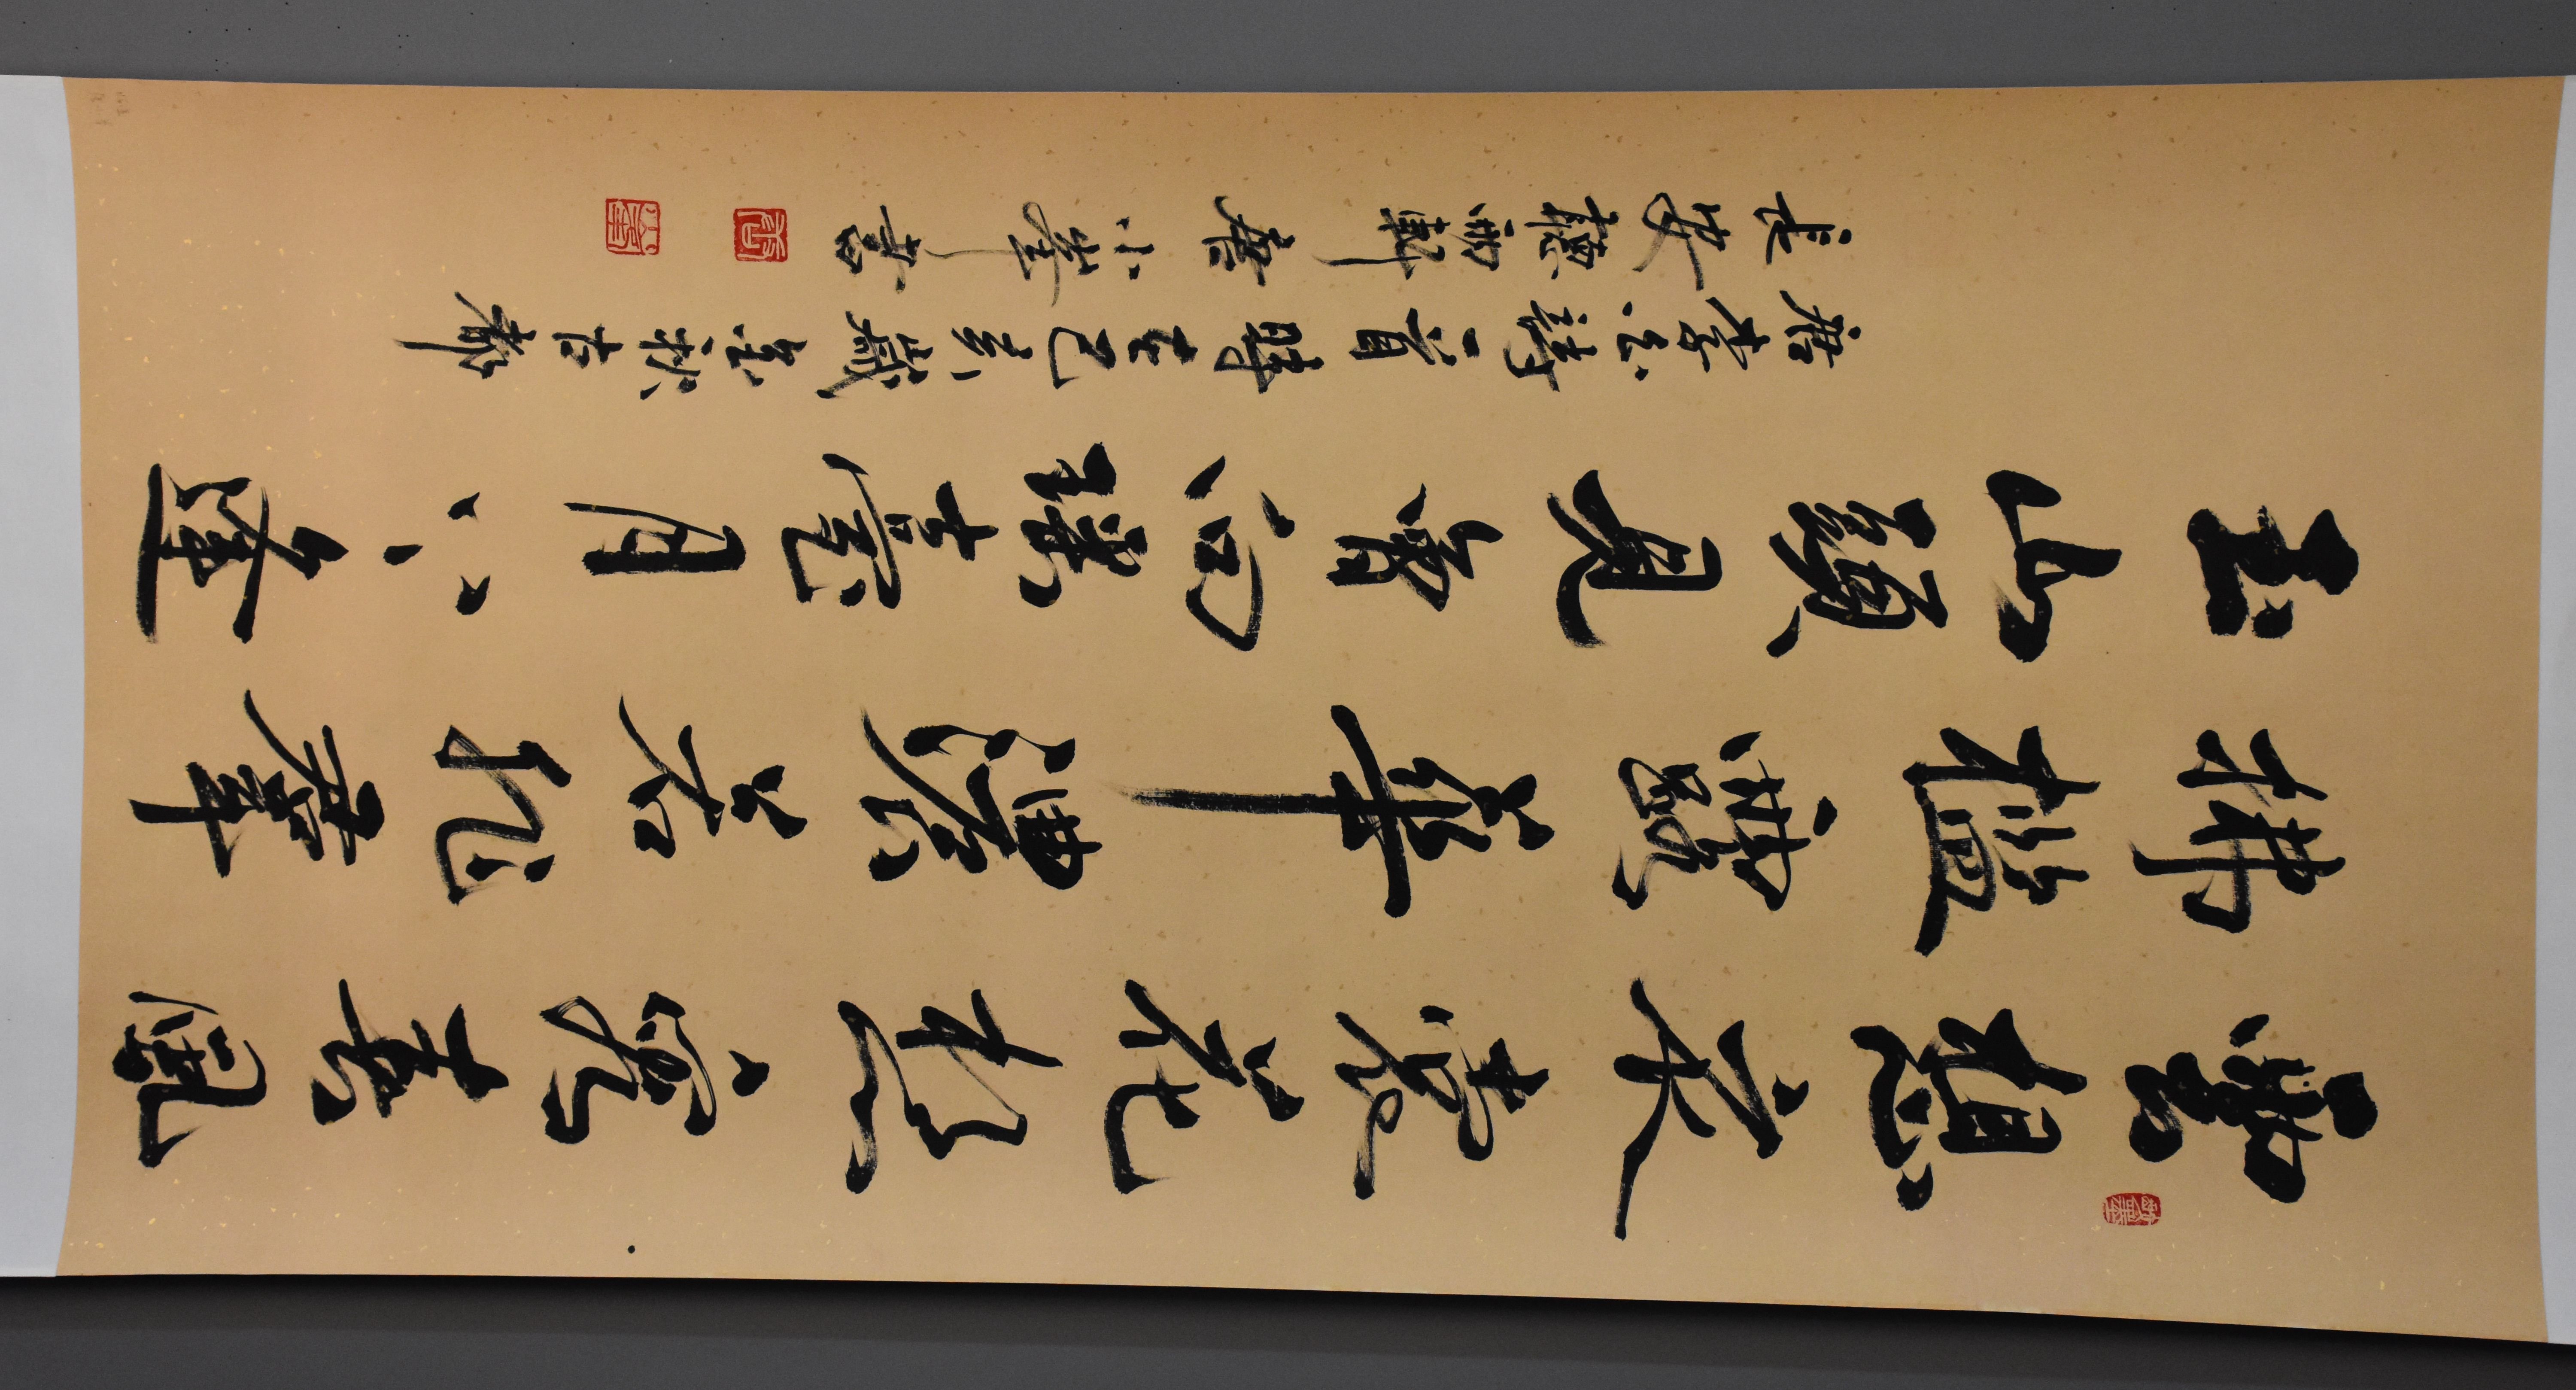 雲想衣裳花想容春風
拂檻露華濃若非群
玉山頭見會向瑤臺月下逢
唐李白詩一首時在己亥歲秋古都
長安聽雨軒小書